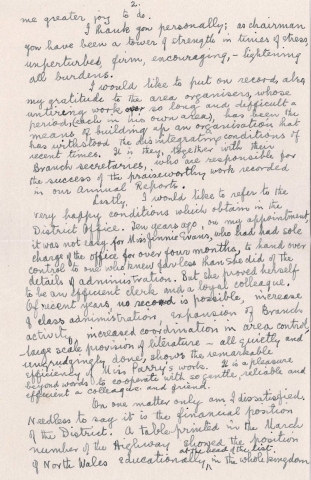 2.
me greater joy to do.
I thank you personally; as chairman
you have been a tower of strength in times of stress,
unperturbed, firm, encouraging, - lightening
all burdens.
I would like to put on record, also,
my gratitude to the area organisers, whose
untiring work over so long and difficult a
period, (each in his own area), has been the
means of building up an organisation that
has withstood the disintegrating conditions of
recent times. It is they, together with their
Branch secretaries, who are responsible for
the success of the praiseworthy work recorded
in our Annual Reports.
Lastly, I would like to refer to the
very happy conditions which obtain in the
District Office. Ten years ago, on my appointment,
it was not easy for Miss Jennie Evans, who had had sole
charge of the office for over four months, to hand over
control to one who knew far less than she did of the
details of administration. But she proved herself
to be an efficient clerk and a loyal colleague.
Of recent years, no record is possible, increase
of class administration, expansion of Branch
activity, increased coordination in area control,
large scale provision of literature - all quietly and
ungrudgingly done, shows the remarkable
efficiency of Miss Parry's work. It is a pleasure
beyond words to cooperate with so gentle, reliable and
efficient a colleague and friend.
On one matter only am I dissatisfied.
Needless to say it is the financial position
of the District. A table printed in the March
number of the Highway showed the position
of North Wales educationally, at the head of the list, in the whole kingdom